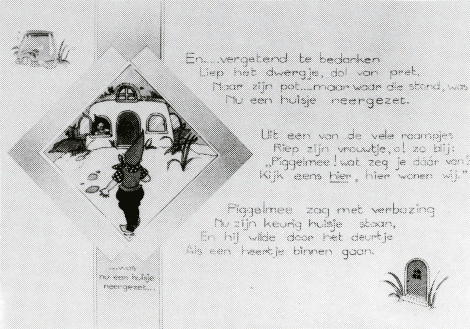 En....vergetend te bedanken
Liep het dwergje, dol van pret,
Naar zijn pot....maar waar die stond, was
Nu een huisje neergezet.
Uit een van de vele raampjes
Riep zijn vrouwtje, o! zo blij:
„Piggelmee! wat zeg je dáár van?
Kijk eens hier, hier wonen wij."
Piggelmee zag met verbazing
Nu zijn keurig huisje staan,
En hij wilde door het deurtje
Als een heertje binnen gaan.
....was
nu een huisje
neergezet....